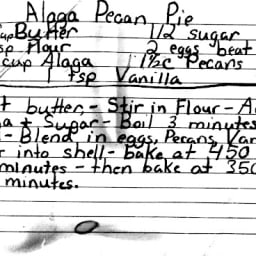 Alaga Pecan Pie
cup Butter 1/2 sugar
sp Flour 2 eggs beat
cup Alaga 1 1/2c Pecans
1 tsp Vanilla
t butter, - Stir in Flour - A
a + Sugar - Boil 3 minutes
- Blend in eggs, Pecans, Van
r into shell - bake at 450
minutes - then bake at 350
minutes.